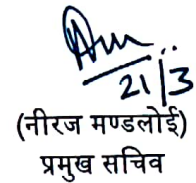 21/3
(नीरज मण्डलोई)
प्रमुख सचिव